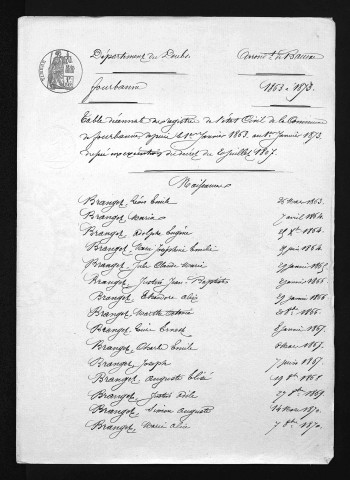 Département du Doubs
Arrond.t de Baume
Fourbanne
1863 à 1873.
Table décennale des registres de l'état civil de la Commune
de Fourbanne depuis le 1er Janvier 1863 au 1er Janvier 1873.
en exécution du décret du 20 juillet 1807.
Naissances
Branget, Léon Emile 26 mars 1863.
Branget, Maria 7 avril 1864.
Branget, Adolphe Eugène 1864.
Branget, Marie Joséphine Emélie juin 1864.
Branget, Jules Claude Marie 29 janvier 1865
Branget, Justin Jean-Baptiste 2 janvier 1866
Branget, Alix 29 janvier 1866
Branget, Marthe 1866.
Branget, Ernest 8 janvier 1867.
Branget, Charles Emile 6 mars 1867.
Branget, Joseph 7 juin 1867.
Branget, Auguste 19
Branget, 27 1869.
Branget, Simon Auguste 14 mars 1870.
Branget, Marie 7 1870.